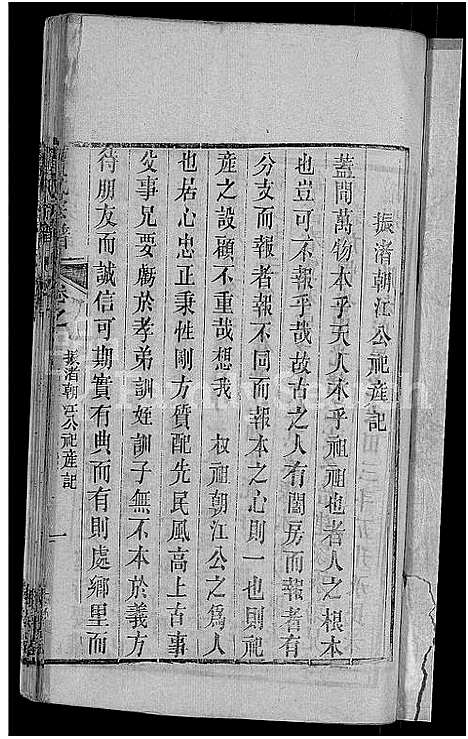 振渚朝江公祀産記
蓋聞萬物本乎天人本乎祖祖也者人之根本
也豈可不報乎哉故古之人有闔房而報者有
分支而報者報不同而報本之心則一也則祀
産之設顧不重哉想我 叔祖朝江公之爲人
也居心忠正秉性剛方質配先民風高上古事
父事兄要勵於孝弟訓姪訓子無不本於義方
待朋友而誠信可期實有典而有則處鄉里而
氏宗譜
卷之
振渚朝江公祀産記
一